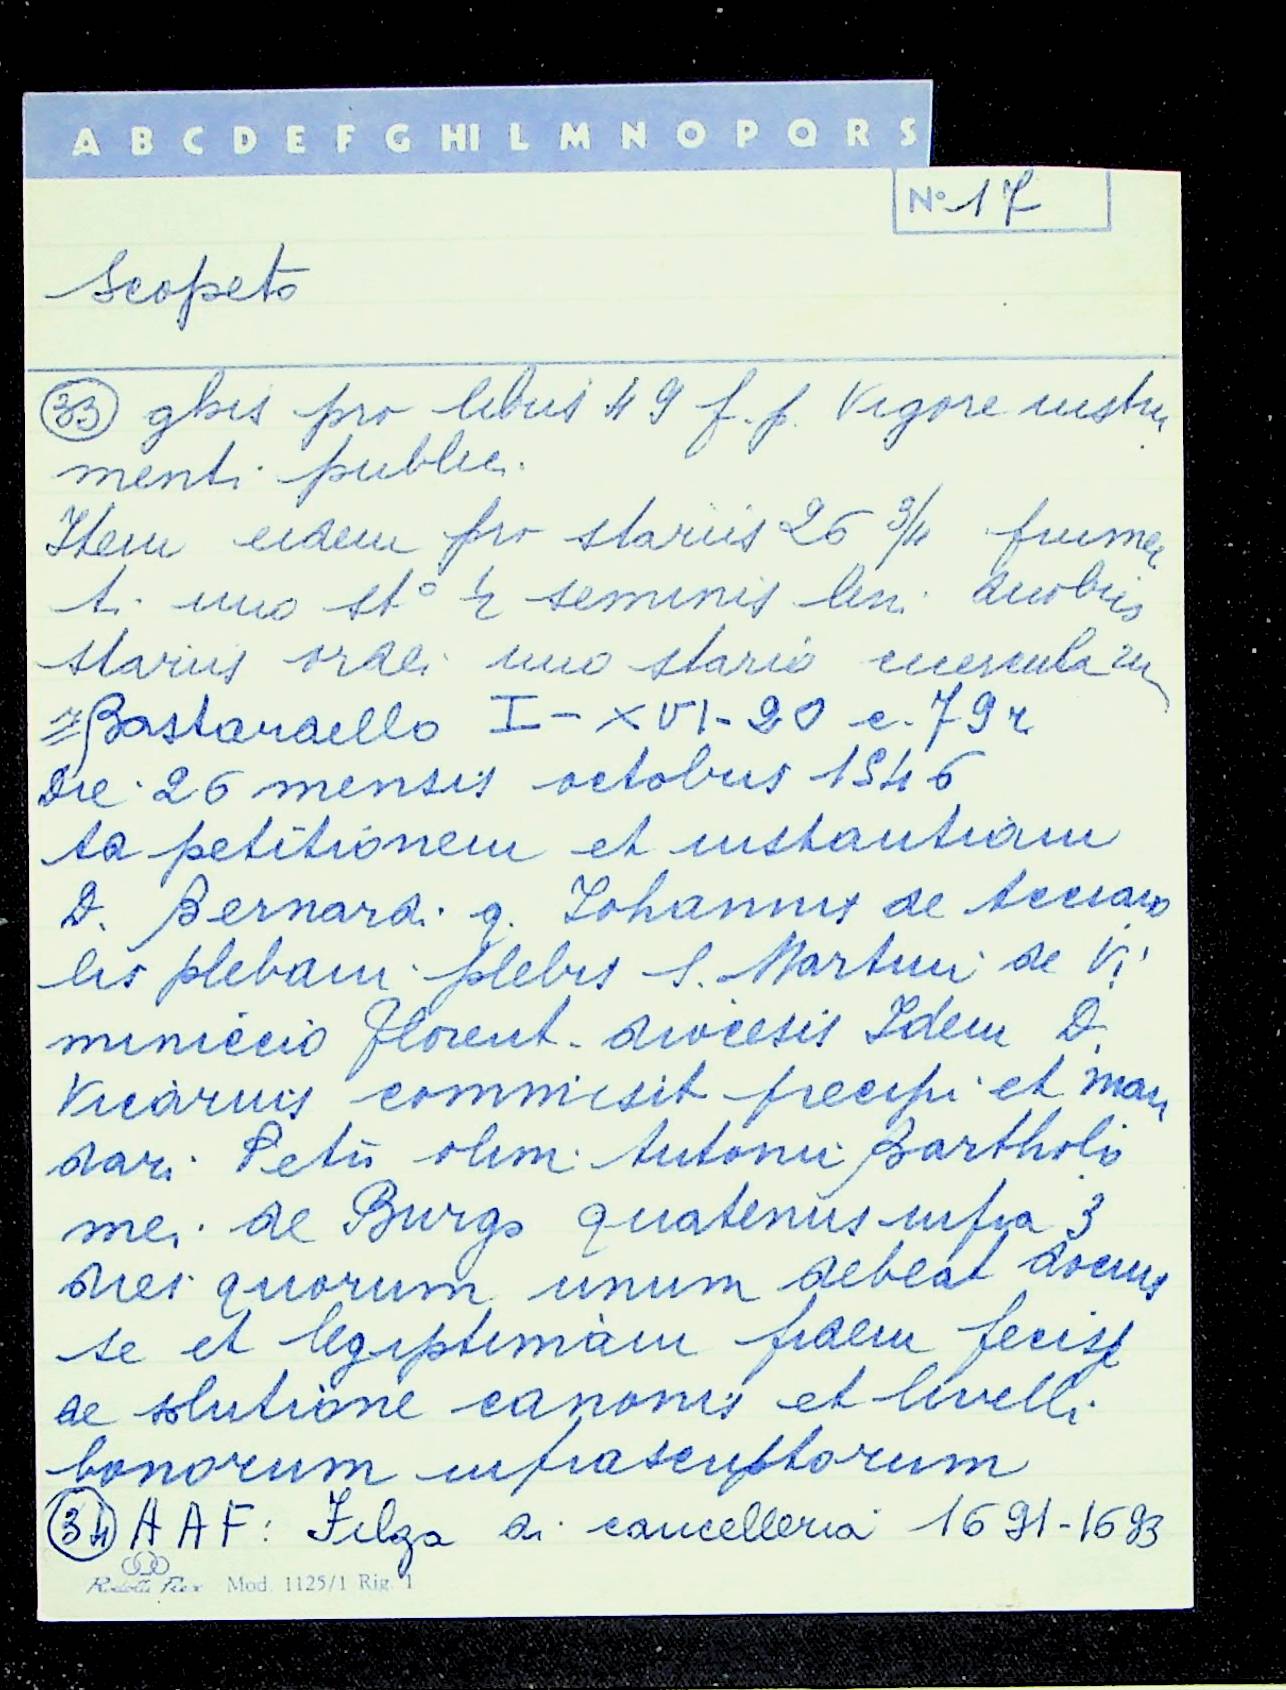 A B C D E F G HI L M N O P Q R S
N° 17
Scopeto
33 ghis pro libris 49 f. p. Vigore instru
menti publici.
Item eidem pro stariis 26 3/4 frumen
ti uno st° 1/2 seminis lini duobus
stariis ordei uno stario
= Bastardello I - XVI - 20 c. 79r
Die 26 mensis octobris 1546
Ad petitionem et instantiam
D. Bernardi q. Johannis de Acciaio
lis plebani plebis S. Martini de Vi
miniccio Florent. diocesis Idem D.
Vicarius commisit precipi et man
dari Petri olim Antonii Bartholo
mei de Burgo quatenus infra 3
dies quorum unum debeat docuis
se et legiptimam fidem fecisse
de solutione canonis et livelli
bonorum infrascriptorum
34 A A F: Filza di cancelleria 1691-1693
Mod. 1125/1 Rig. 1